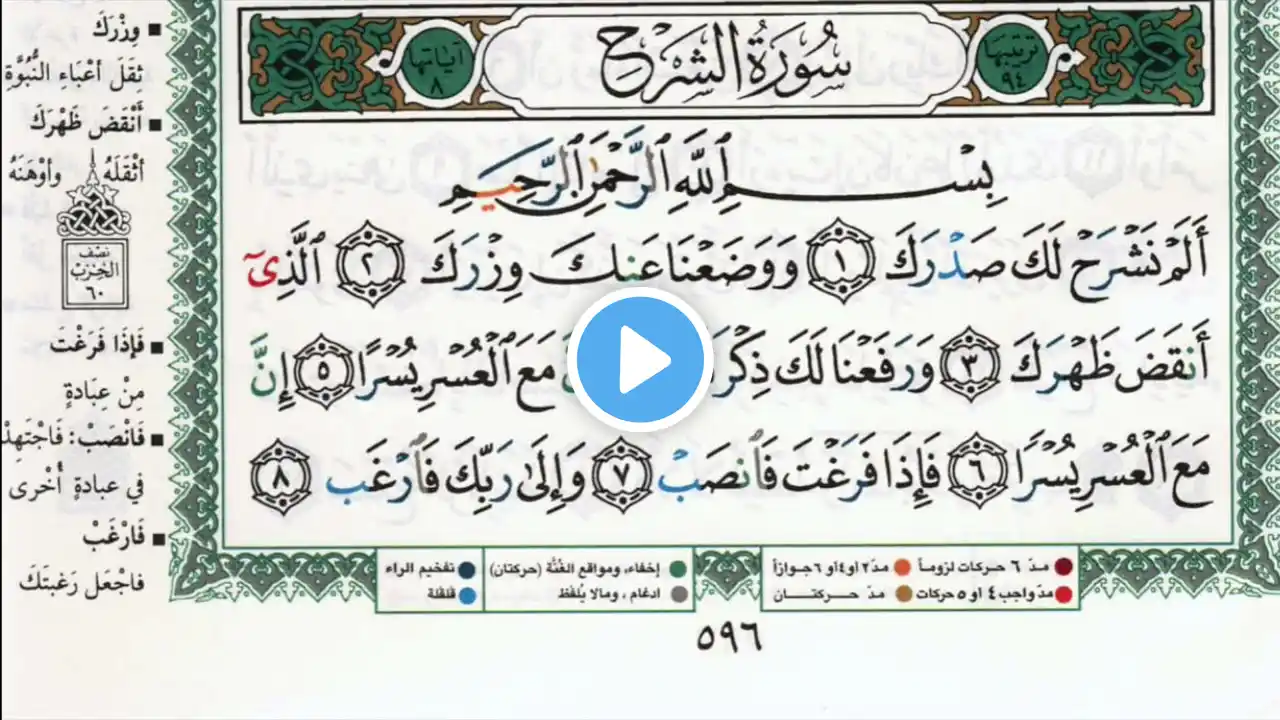 ترتيبها ٩٤
سُورَةُ الشَّرْحِ
آياتها ٨
بِسْمِ اللَّهِ الرَّحْمَٰنِ الرَّحِيمِ
أَلَمْ نَشْرَحْ لَكَ صَدْرَكَ ١ وَوَضَعْنَا عَنكَ وِزْرَكَ ٢ الَّذِىٓ
أَنقَضَ ظَهْرَكَ ٣ وَرَفَعْنَا لَكَ ذِكْرَ مَعَ الْعُسْرِ يُسْرًا ٥ إِنَّ
مَعَ الْعُسْرِ يُسْرًا ٦ فَإِذَا فَرَغْتَ فَانصَبْ ٧ وَإِلَىٰ رَبِّكَ فَارْغَب ٨
■ وِزْرَكَ
ثِقَلَ أَعْبَاءِ النُّبُوَّةِ
■ أَنْقَضَ ظَهْرَكَ
أثْقَلَهُ وأَوْهَنَهُ
نصف
الحزب
٦٠
■ فَإِذَا فَرَغْتَ
مِنْ عِبَادَةٍ
■ فَانْصَبْ: فَاجْتَهِدْ
في عبادةٍ أُخْرى
■ فَارْغَبْ
فاجْعَل رَغبتَكَ
مدّ ٦ حركات لزوماً
مدّ ٢ او ٤ او ٦ جوازاً
مدّ واجب ٤ او ٥ حركات
مدّ حركتان
إخفاء، ومواقع الغُنَّة (حركتان)
ادغام، ومالا يُلفَظ
تفخيم الراء
قلقلة
٥٩٦